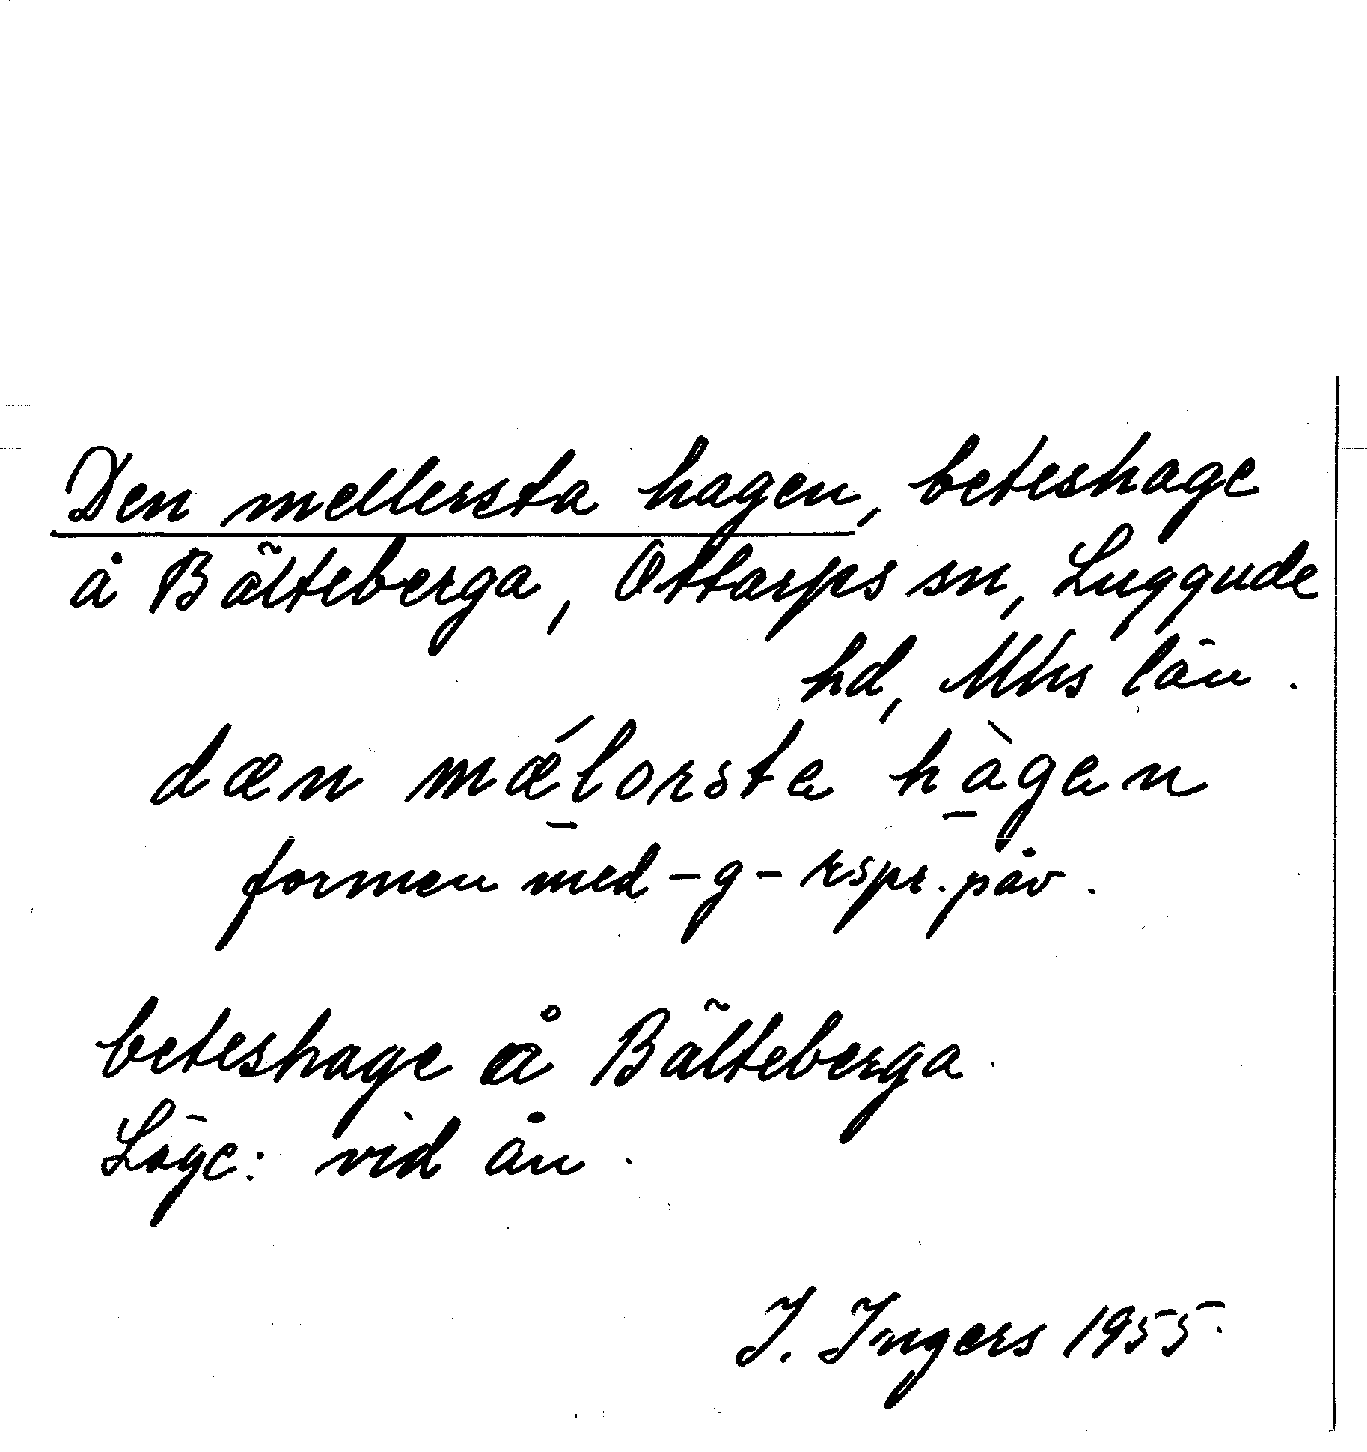 Den mellersta hagen, beteshage
å Bälteberga, Ottarps sn, Luggude
hd, Mhs län.
dæn mǽlorsta hàgan
formen med -g- rspr. påv.
beteshage å Bälteberga.
Läge: vid ån.
I. Ingers 1955.